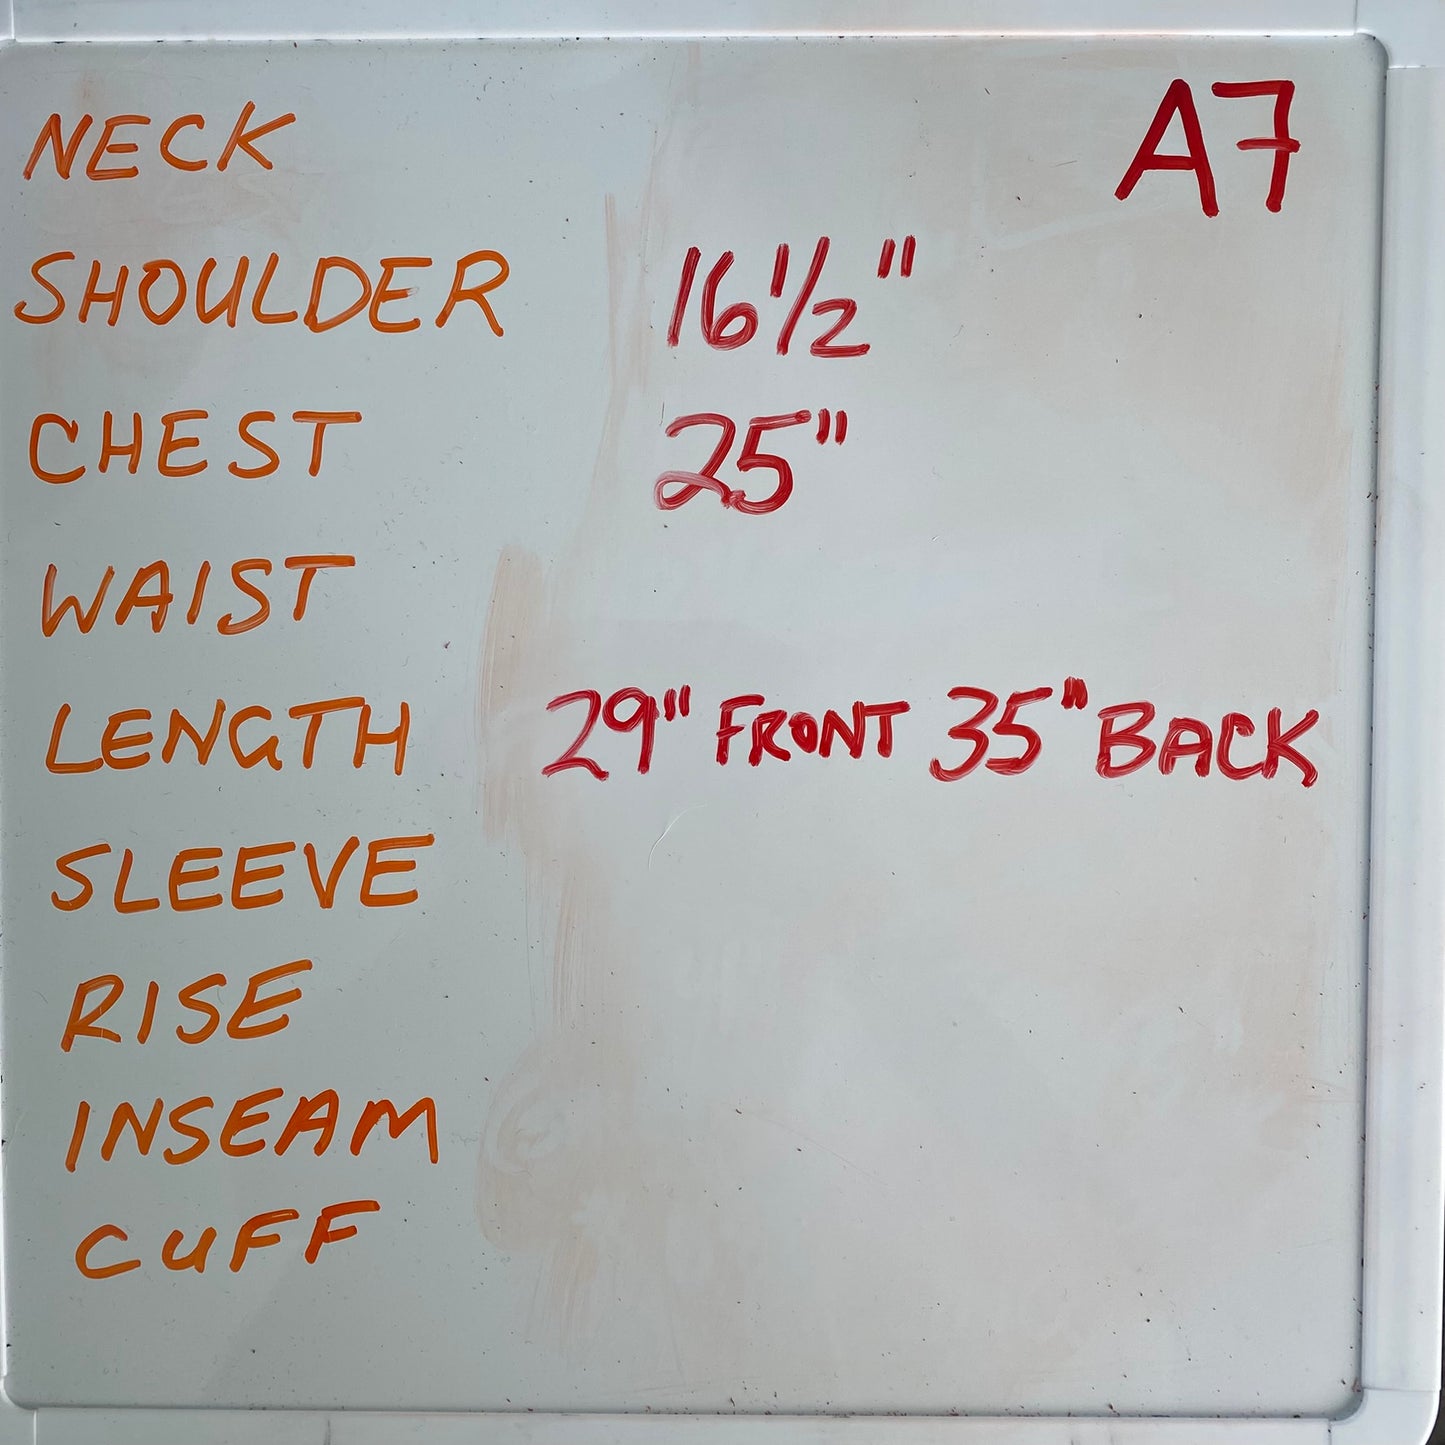 A7
NECK
SHOULDER 16 1/2"
CHEST 25"
WAIST
LENGTH 29" FRONT 35" BACK
SLEEVE
RISE
INSEAM
CUFF